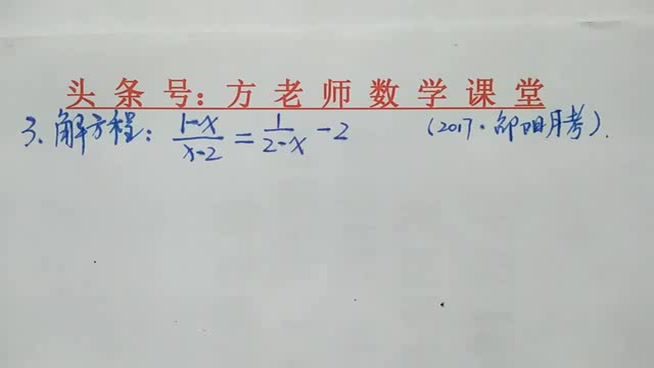 头条号：方老师数学课堂
3. 解方程： (1-x)/(x-2) = 1/(2-x) - 2 （2017·邵阳月考）.